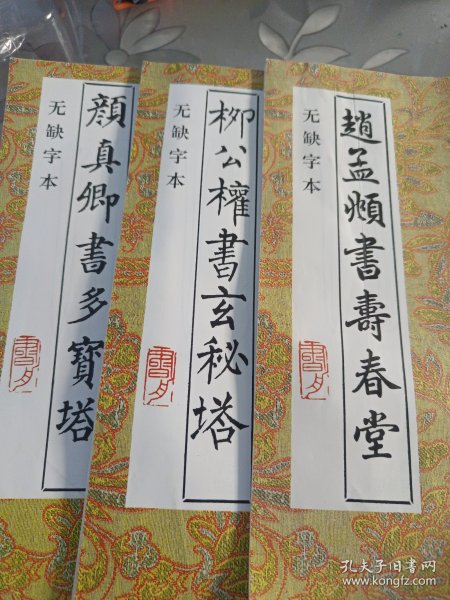 顔真卿書多寶塔
无缺字本
柳公權書玄秘塔
无缺字本
趙孟頫書壽春堂
无缺字本
孔夫子旧书网
www.kongfz.com